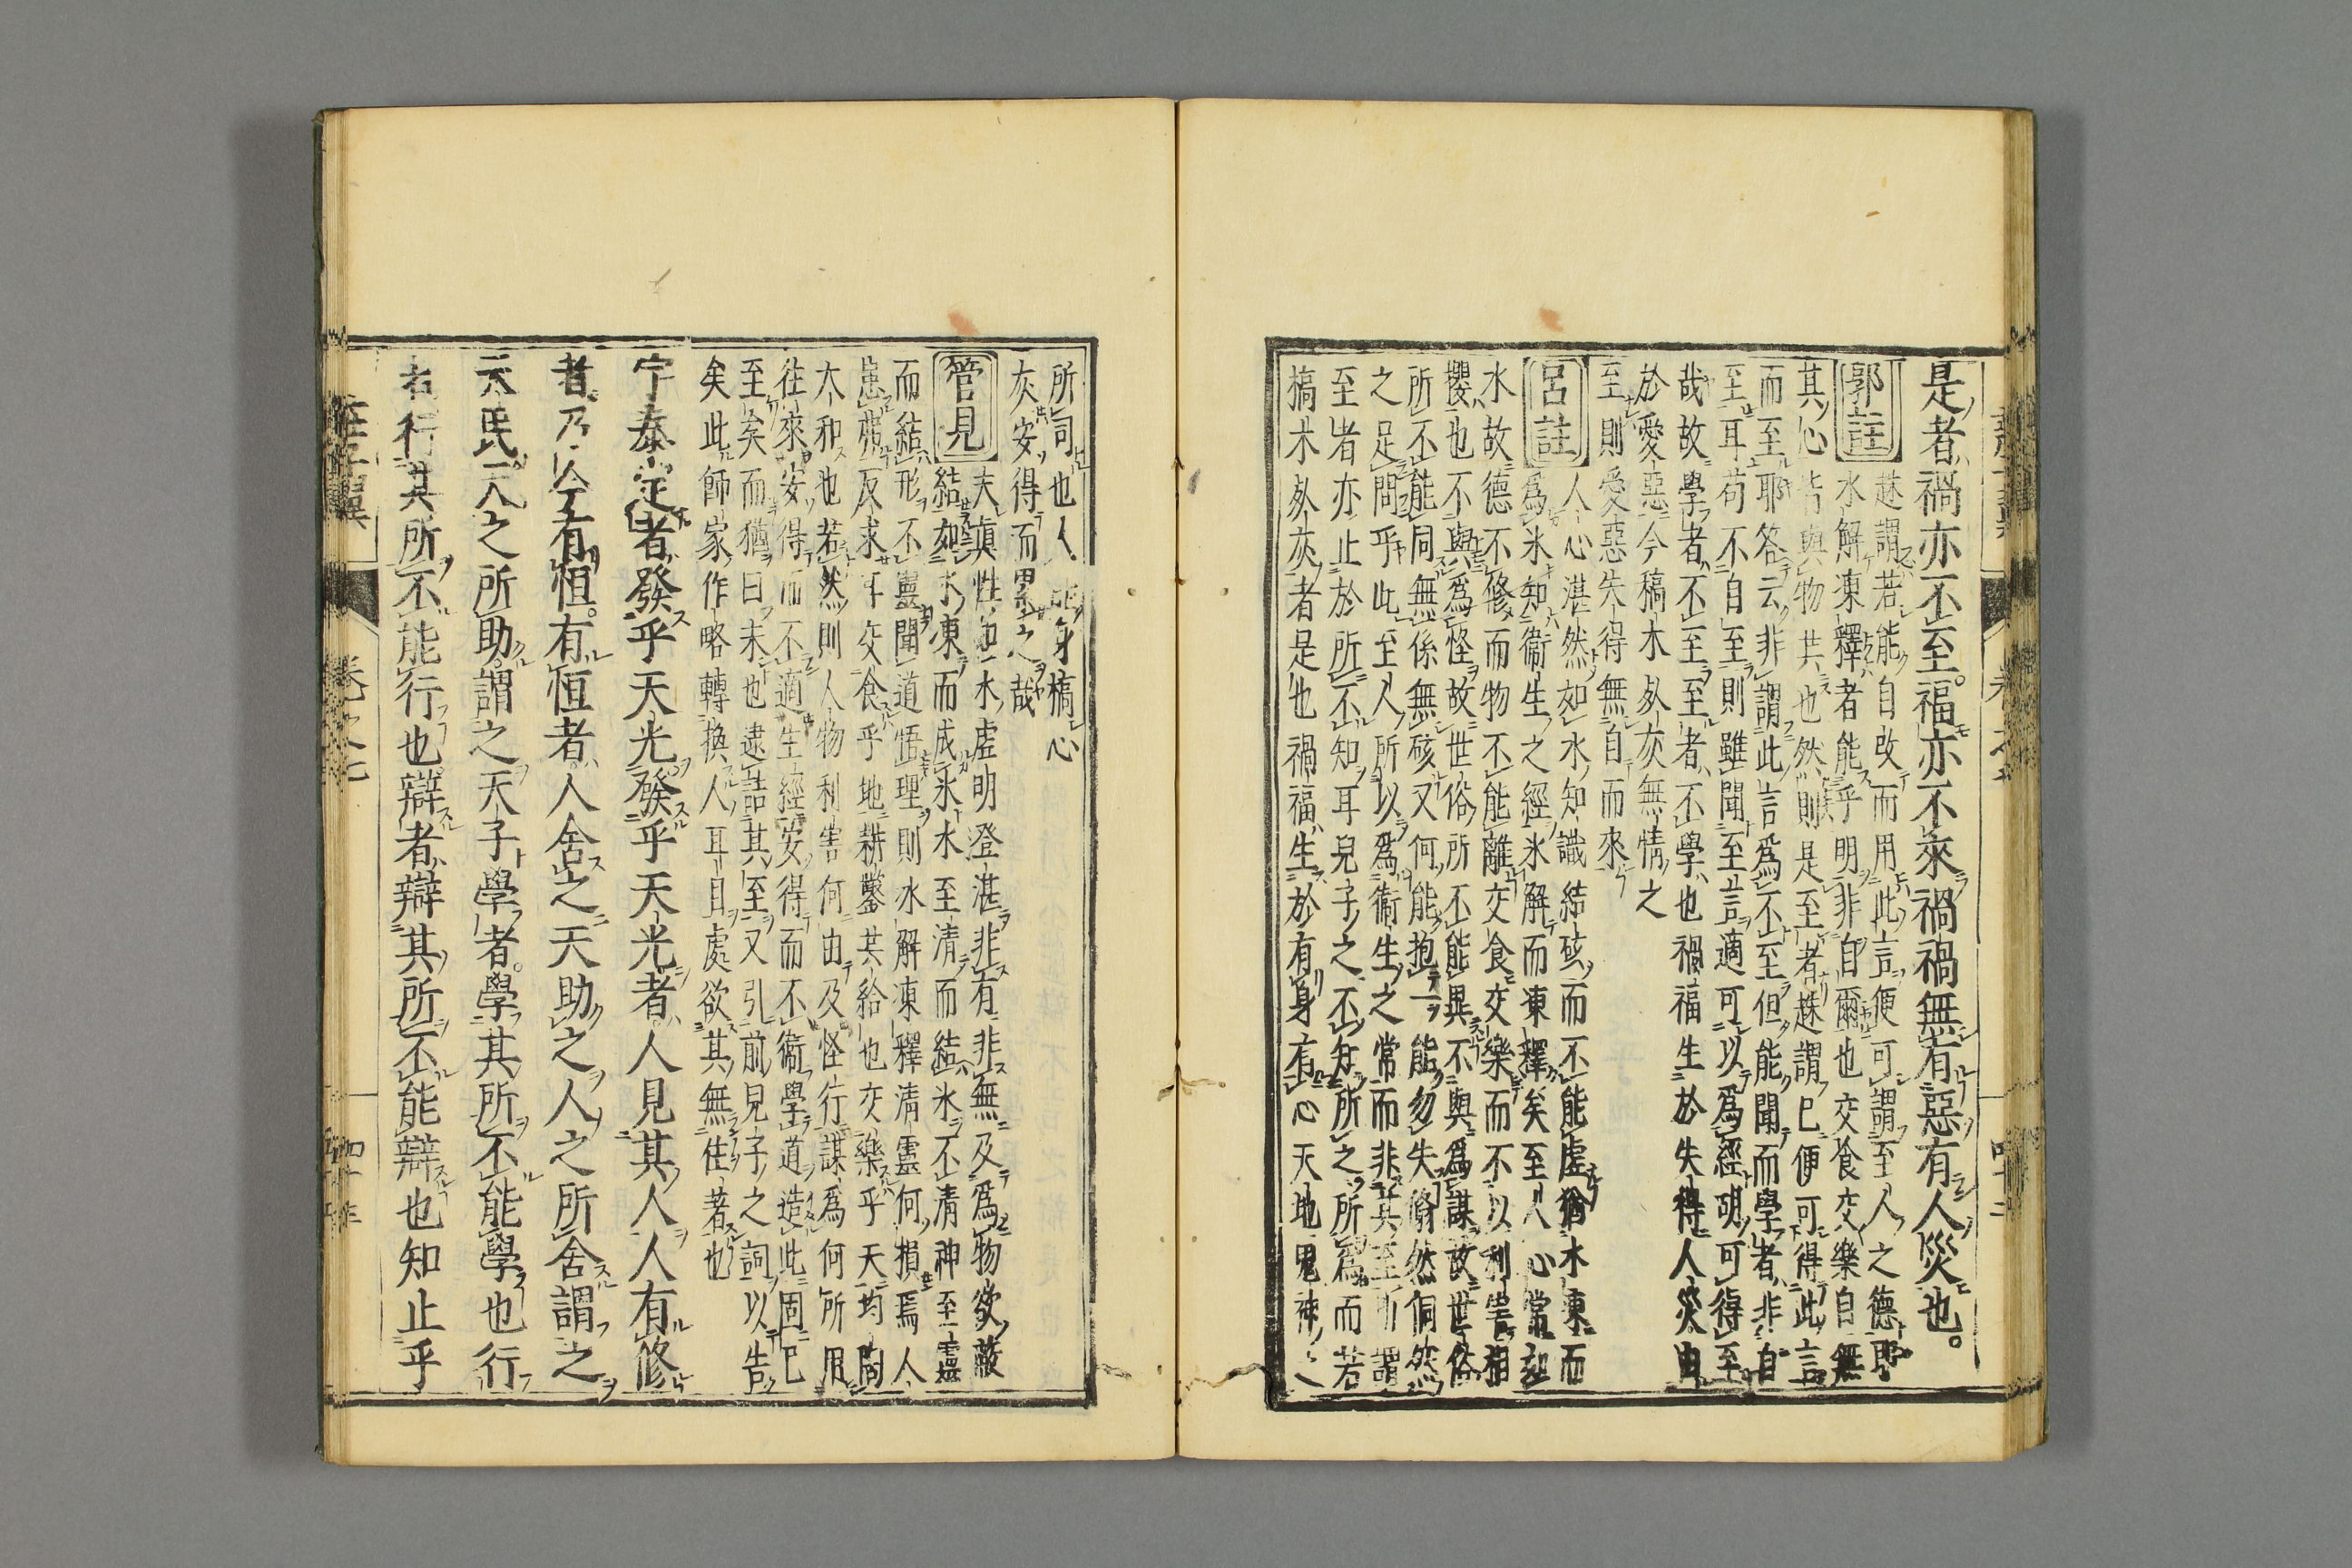 是者禍亦不至。福亦不來禍福無有惡有人災也。
郭註
趎謂若能自改而用此言便可謂至人之德耶
水解凍釋者能乎明非自爾也交食交樂自無
其心皆與物共也然則是至者趎謂已便可得此言
而至耶答云非謂此言爲不至但能聞而學者非自
至耳苟不自至則雖聞至言適可以爲經胡可得至
哉故學者不至至者不學也禍福生於失得人災由
於愛惡今槁木死灰無情之
至則愛惡失得無自而來
呂註
人心湛然如水知識結硋而不能虛猶水凍而
爲氷知衞生之經氷解而凍釋矣至人心常如
水故德不修而物不能離交食交樂而不以利害相
攖也不與爲怪故世俗所不能異不與爲謀故世俗
所不能同無係無硋又何能抱一能勿失翛然侗然
之足問乎此至人所以爲衞生之常而非其至所謂
至者亦止於所不知耳兒子之不知所之所爲而若
槁木死灰者是也禍福生於有身有心天地鬼神之
所司也人能身槁心
灰安得而累之哉
管見
夫眞性如水虛明澄湛非有非無及爲物欲蔽
結如水凍而成氷水至清而結氷不清神至靈
而結形不靈聞道悟理則氷解凍釋清靈何損焉人
患弗反求耳交食乎地耕鑿共給也交樂乎天均陶
太和也若然則人物利害何由及怪行謀爲何所用
往來安得而不適生經安得而不衞學道造此固已
至矣而猶曰未也逮詰其至又引前兒子之詞以告
矣此師家作略轉換人耳目處欲其無住著也
宇泰定者發乎天光發乎天光者人見其人人有修
者乃今有恒。有恒者人舍之天助之人之所舍謂之
天民天之所助謂之天子學者。學其所不能學也行
者行其所不能行也辯者辯其所不能辯也知止乎
莊子翼
卷之七